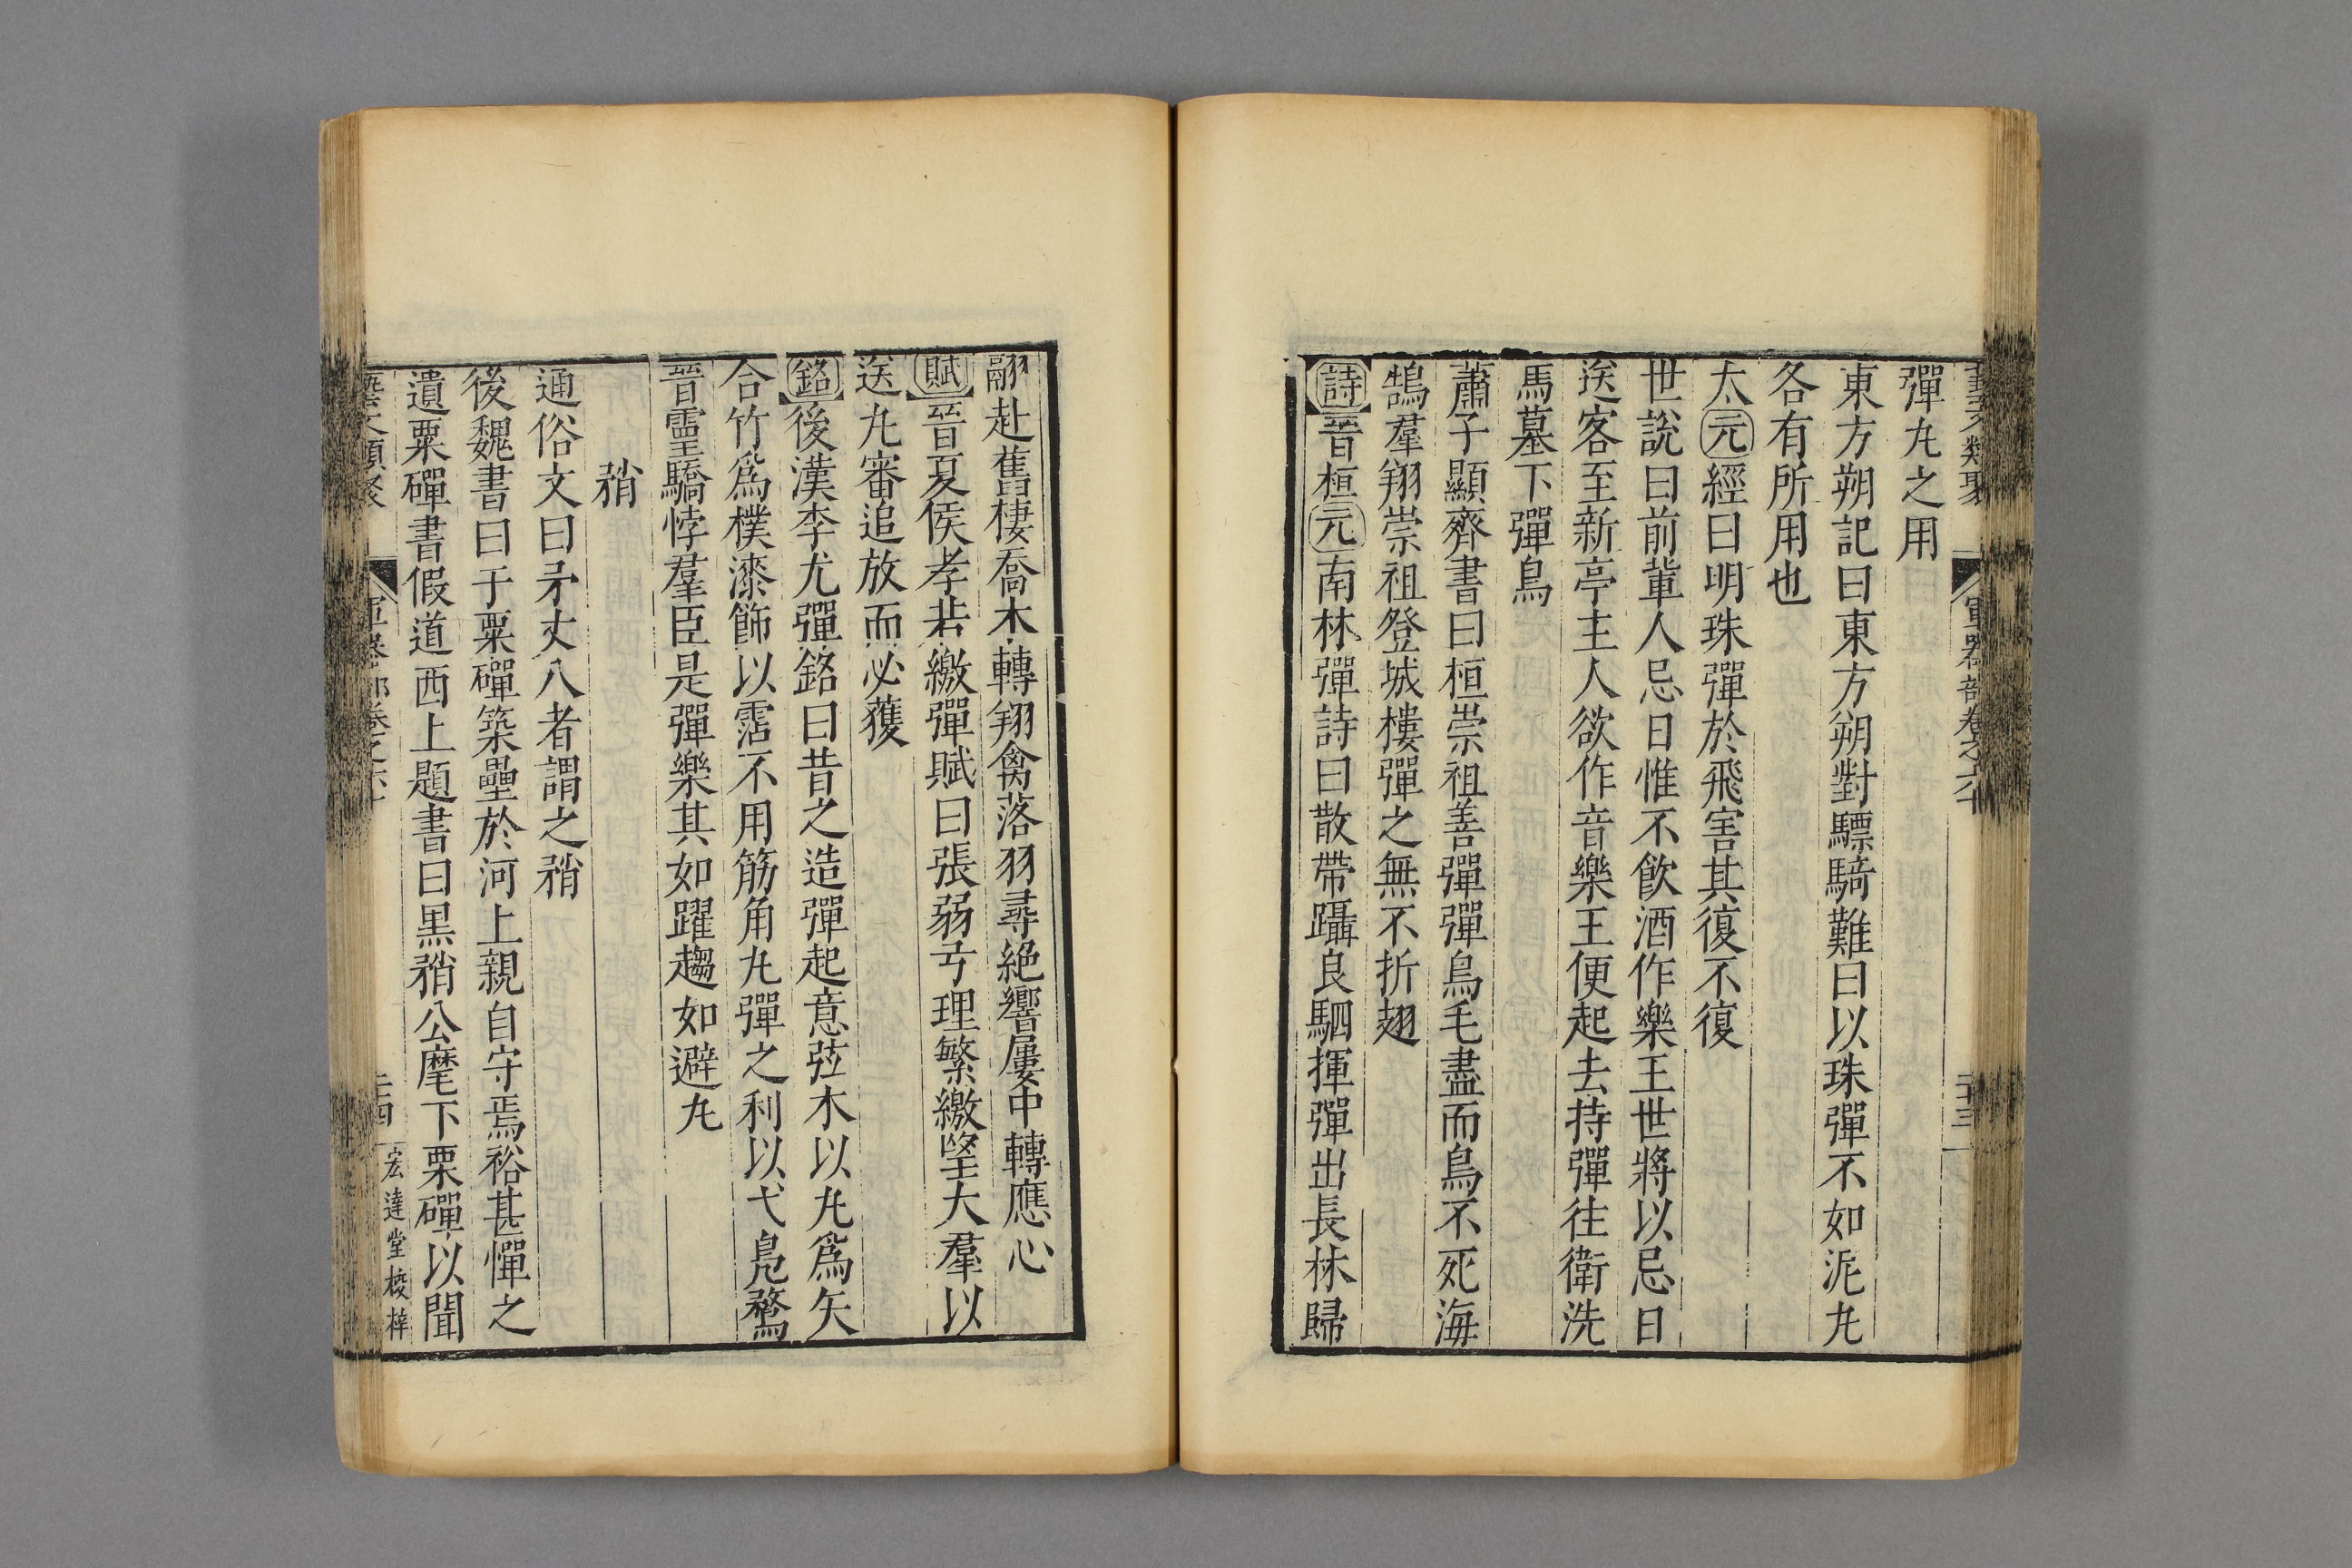 藝文類聚 軍器部卷之六十 二十三
彈丸之用
東方朔記曰東方朔對驃騎難曰以珠彈不如泥丸
各有所用也
太元經曰明珠彈於飛害其復不復
世說曰前軰人忌日惟不飲酒作樂王世將以忌日
送客至新亭主人欲作音樂王便起去持彈往衛洗
馬墓下彈鳥
蕭子顯齊書曰桓崇祖善彈彈鳥毛盡而鳥不死海
鵠羣翔崇祖登城樓彈之無不折翅
詩晉桓元南林彈詩曰散帶躡良駟揮彈出長林歸
翮赴舊棲喬木轉翔禽落羽尋絕響屢中轉應心
賦晉夏侯孝若繳彈賦曰張弱弓理繁繳望大羣以
送丸審追放而必獲
銘後漢李尤彈銘曰昔之造彈起意弦木以丸爲矢
合竹爲樸漆飾以霑不用筋角丸彈之利以弋鳧鶩
晉靈驕悖羣臣是彈樂其如躍趨如避丸
矟
通俗文曰矛丈八者謂之矟
後魏書曰于粟磾築壘於河上親自守焉裕甚憚之
遺粟磾書假道西上題書曰黑矟公麾下栗磾以聞
藝文類聚 軍器部卷之六十 二十四 宏達堂校梓